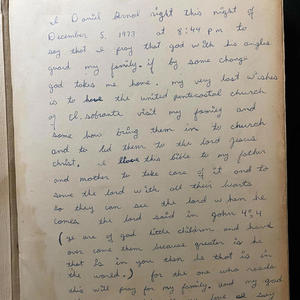 I Daniel Arnod right this night of
December 5, 1973 at 8:44 PM to
say that I pray that god with his angles
guard my family. if by some change
god takes me home. my very last wishes
is to have the united pentecostal church
of El. sobrante visit my family and
some how bring them in to church
and to led them to the lord Jesus
christ. I leave this bible to my father
and mother to take care of it and to
serve the lord with all their hearts
so they can see the lord when he
comes. the lord said in John 4:4
(ye are of god little children, and have
over come them because greater is he
that is in you than he that is in
the world.) for the one who reads
this will pray for my family. and my god
love all way